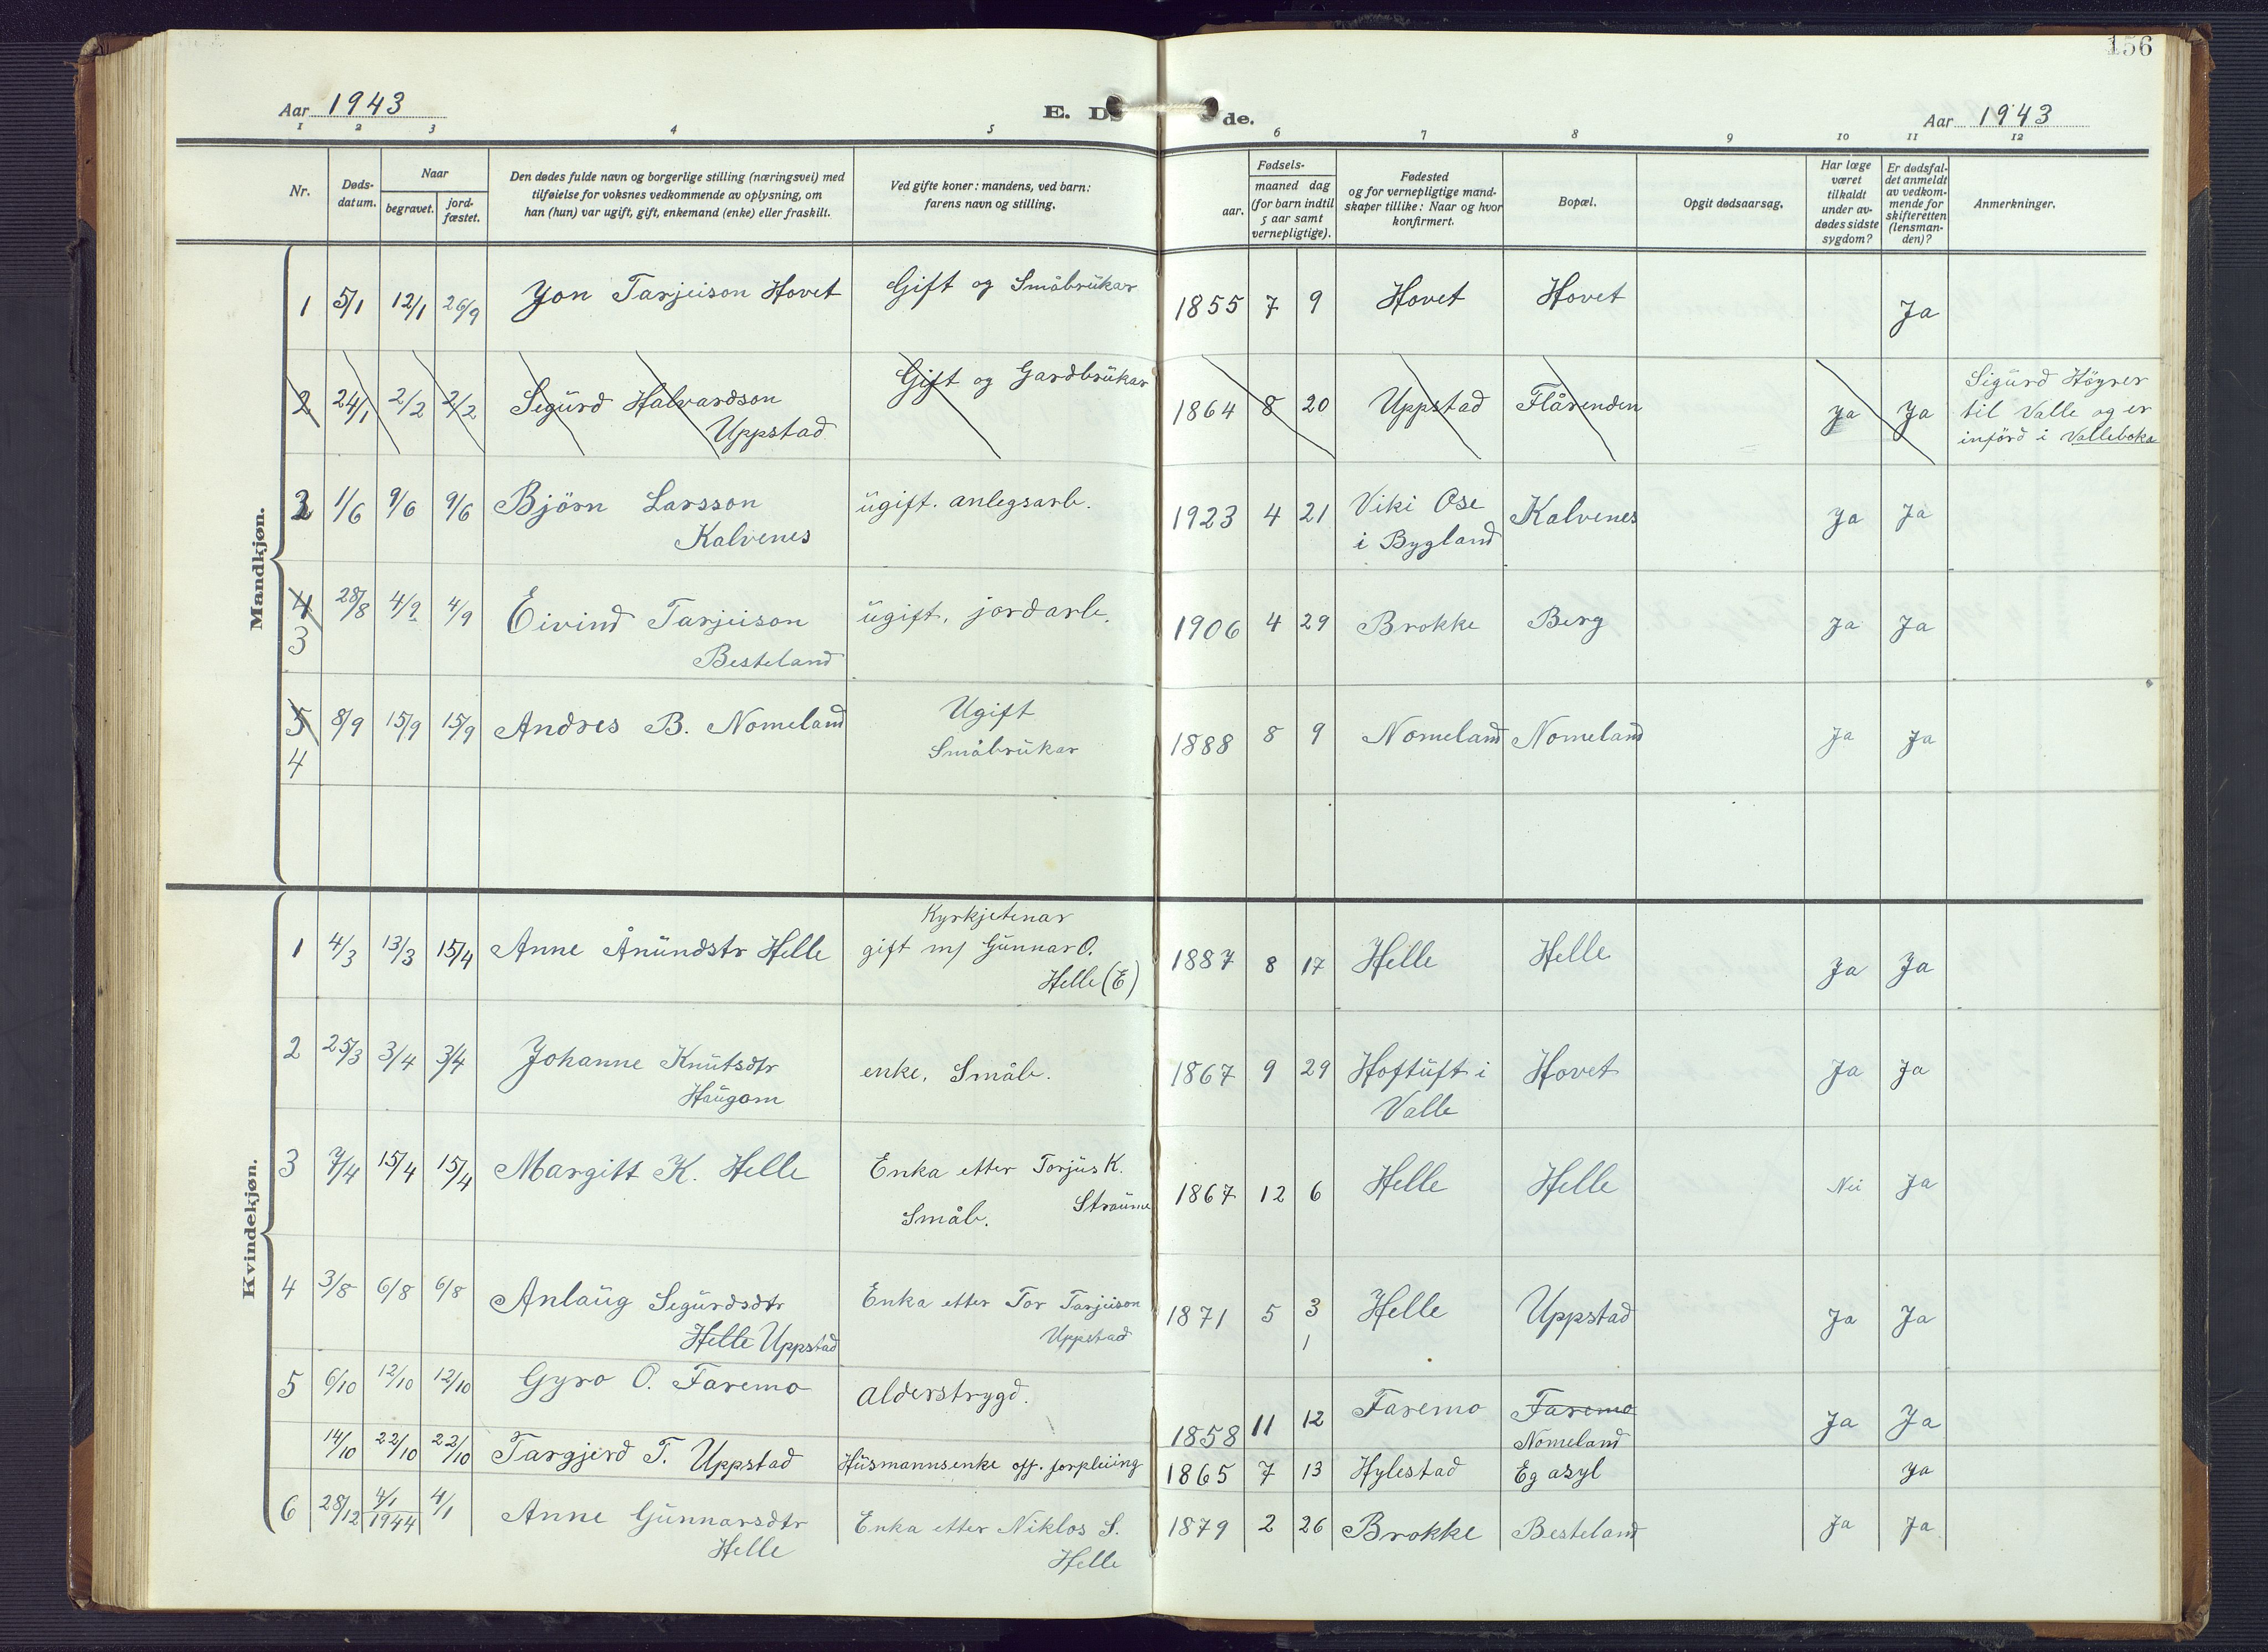 156
Aar 1943
E. Dø de.
Aar 1943
1 2 3 4 5 6 7 8 9 10 11 12
Nr.
Døds-
datum.
Naar
begravet.
jord-
fæstet.
Den dødes fulde navn og borgerlige stilling (næringsvei) med
tilføielse for voksnes vedkommende av oplysning, om
han (hun) var ugift, gift, enkemand (enke) eller fraskilt.
Ved gifte koner: mandens, ved barn:
farens navn og stilling.
Fødsels-
aar.
maaned dag
(for barn indtil
5 aar samt
vernepligtige).
Fødested
og for vernepligtige mand-
skaper tillike: Naar og hvor
konfirmert.
Bopæl.
Opgit dødsaarsag.
Har læge
været
tilkaldt
under av-
dødes sidste
sygdom?
Er dødsfal-
det anmeldt
av vedkom-
mende for
skifteretten
(lensman-
den)?
Anmerkninger.
Mandkjøn.
1 5/1 12/1 26/9 Jon Tarjeison Hovet Gift og Småbrükar 1855 7 9 Hovet Hovet Ja
2 24/1 2/2 2/2 Sigürd Halvardson Gift og Gardbrükar 1864 8 20 Uppstad Flårenden Ja Ja Sigürd Höyrer
Uppstad til Valle og er
införd i Valleboka
2 1/6 9/6 9/6 Björn Larsson ügift. anlegsarb. 1923 4 21 Viki Ose Kalvenes Ja Ja
Kalvenes i Bygland
4 28/8 4/9 4/9 Eivind Tarjeison ügift, jordarb. 1906 4 29 Brokke Berg Ja Ja
3 Besteland
5 8/9 15/9 15/9 Andres B. Nomeland Ugift 1888 8 9 Nomeland Nomeland Ja Ja
4 Småbrükar
Kvindekjøn.
Kyrkjetenar
1 4/3 13/3 15/4 Anne Ånündstr Helle gift m/ Günnar O. 1887 8 17 Helle Helle Ja Ja
Helle (E)
2 25/3 3/4 3/4 Johanne Knütsdtr enke, Småb. 1867 9 29 Hoftüft i Hovet Ja Ja
Haügom Valle
3 7/4 15/4 15/4 Margitt K. Helle Enka etter Torjüs K. 1867 12 6 Helle Helle Nei Ja
Straüme
Småb.
4 3/8 6/8 6/8 Anlaüg Sigürdsdtr Enka etter Tor Tarjeison 1871 5 3 Helle Uppstad Ja Ja
Helle Uppstad Uppstad 1
5 6/10 12/10 12/10 Gyro O. Faremo alderstrygd. 1858 11 12 Faremo Faremo Ja Ja
Nomeland
14/10 22/10 22/10 Targjerd T. Uppstad Hüsmannsenke off. forpleiing 1865 7 13 Hylestad Eg asyl Ja
6 28/12 4/1 4/1 Anne Günnarsdtr Enka etter Niklos S. 1879 2 26 Brokke Besteland Ja Ja
1944
Helle Helle